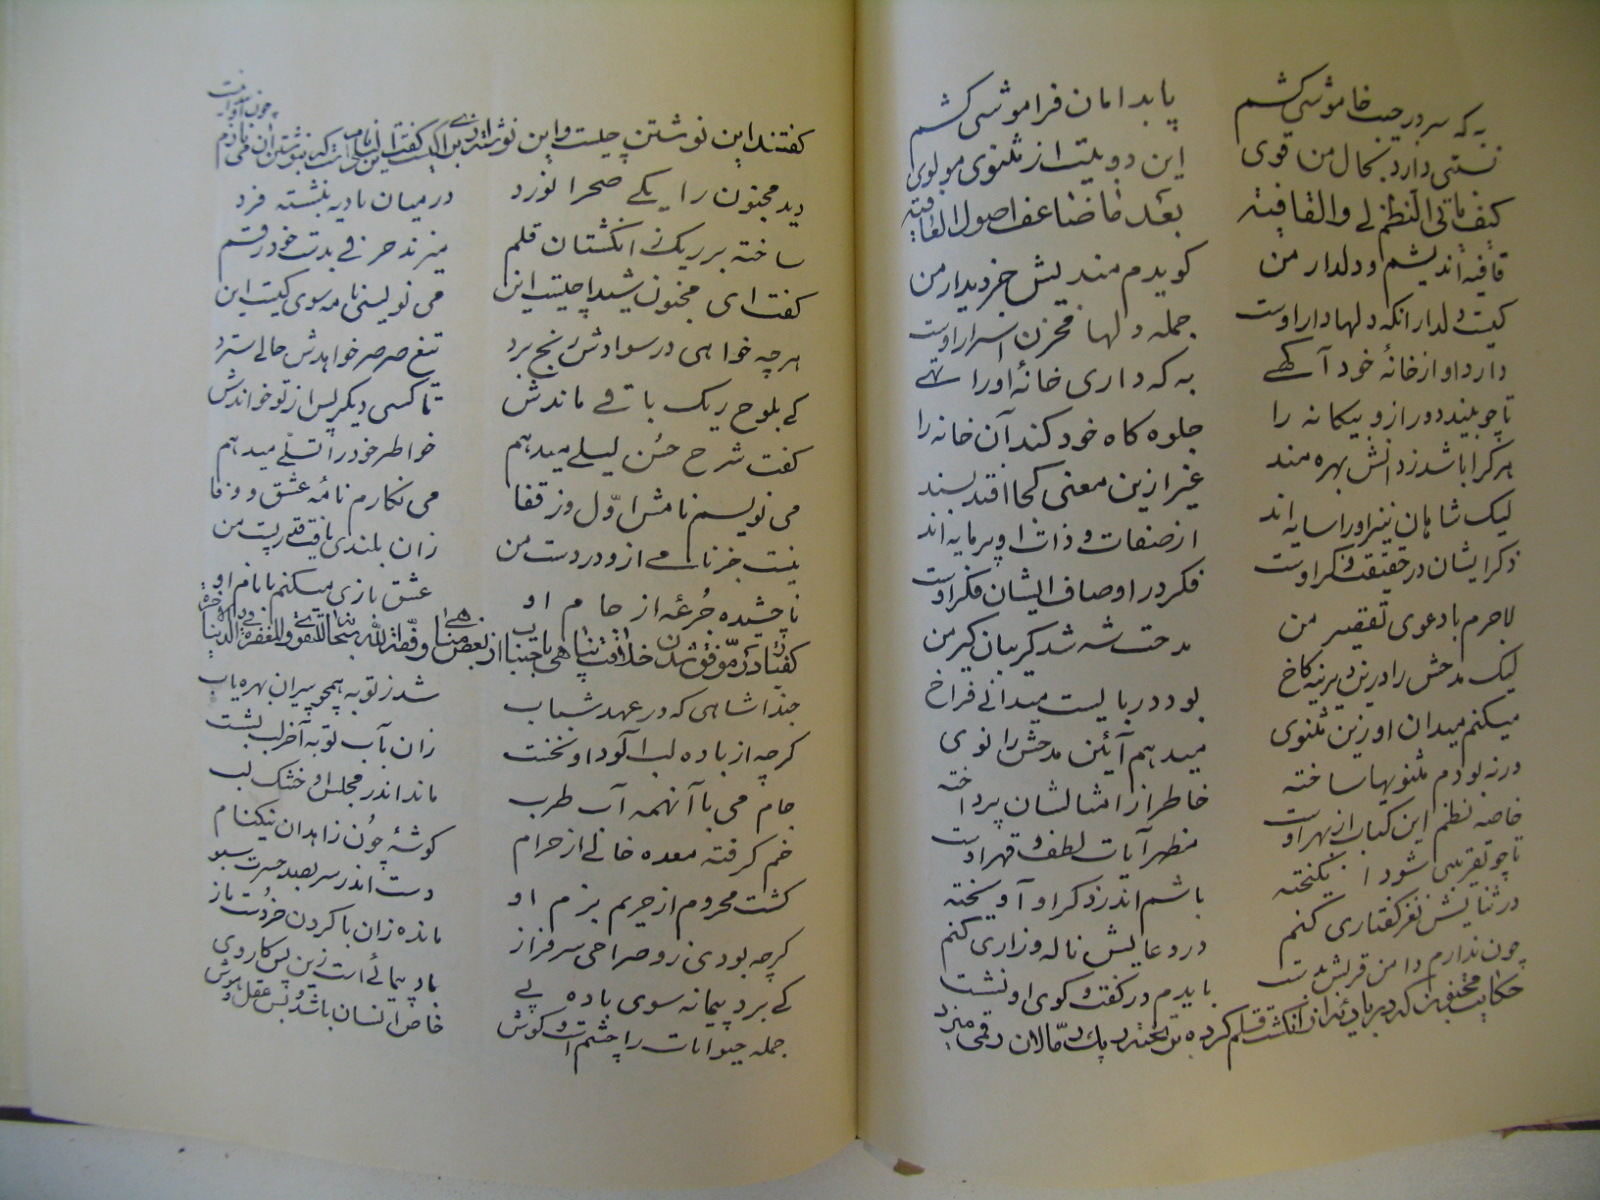 به که سر در جیب خاموشی کشم پا بدامان فراموشی کشم
نسبتی دارد بحال من قوی این دو بیت از مثنوی مولوی
کیف یاتی النظم لی والقافیة بعد ما ضاعف اصول العافیة
قافیه اندیشم و دلدار من گویدم مندیش جز دیدار من
کیست دلدار آنکه دلها دار اوست جمله دلها مخزن اسرار اوست
دارد او از خانهٔ خود آگهی به که داری خانهٔ او را تهی
تا چو بیند دور ازو بیگانه را جلوه گاه خود کند آن خانه را
هر کرا باشد ز دانش بهره مند غیر ازین معنی کجا افتد پسند
لیک شاهان نیز او را سایه اند از صفات و ذات او پر مایه اند
ذکر ایشان در حقیقت ذکر اوست فکر در اوصاف ایشان فکر اوست
لاجرم با دعوی تقصیر من مدحت شه شد گریبان گیر من
لیک مدحش را درین دیرینه کاخ بود در بایست میدانی فراخ
میکنم میدان او زین مثنوی میدهم آئین مدحش را نوی
ورنه بودم مثنویها ساخته خاطر از امثالشان پرداخته
خاصه نظم این کتاب از بهر اوست مظهر آیات لطف و قهر اوست
تا چو تقریبی شود انگیخته باشم اندر ذکر او آویخته
در ثنایش نغز گفتاری کنم در دعایش ناله و زاری کنم
چون ندارم دامن قربش بدست بایدم در گفت و گوی او نشست
حکایت مجنون که در بادیه از انگشت قلم کرده بر تختهٔ ریگ رمالان رقمی میزد
گفتند این نوشتن چیست و این نوشته از برای کیست گفت این نام لیلی است که بنوشتن آن می نازم چون
دید مجنون را یکی صحرا نورد در میان بادیه بنشسته فرد
ساخته بر ریگ ز انگشتان قلم میزند حرفی بدست خود رقم
گفت ای مجنون شیدا چیست این می نویسی نامه سوی کیست این
هر چه خواهی در سوادش رنج برد تیغ صرصر خواهدش حالی سترد
کی بلوح ریگ باقی ماندش تا کسی دیگر پس از تو خواندش
گفت شرح حسن لیلی میدهم خاطر خود را تسلی میدهم
می نویسم نامش اول وز قفا می نگارم نامهٔ عشق و وفا
نیست جز نامی ازو در دست من زان بلندی یافت قدر پست من
ناچشیده جرعهٔ از جام او عشق بازی میکنم با نام او
حبذا شاهی که در عهد شباب شد ز توبه همچو پیران بهره یاب
گرچه از باده لب آلود او نخست زان بآب توبه آخر لب بشست
جام می با آنهمه آب طرب ماند اندر مجلس او خشک لب
خم گرفته معده خالی از حرام گوشهٔ چون زاهدان نیکنام
گشت محروم از حریم بزم او دست اندر سر بصد حسرت سبو
گرچه بودی زو صراحی سرفراز مانده زان با گردن خود دست باز
کی برد پیمانه سوی باده پی باد پیمائی است زین پس کار وی
جمله حیوانات را چشم است و گوش خاص انسان باشد و بس عقل و هوش